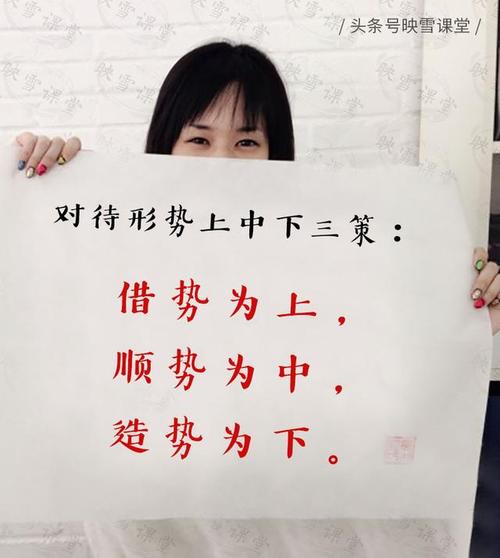 / 头条号映雪课堂 /
对待形势上中下三策：
借势为上，
顺势为中，
造势为下。
映雪课堂